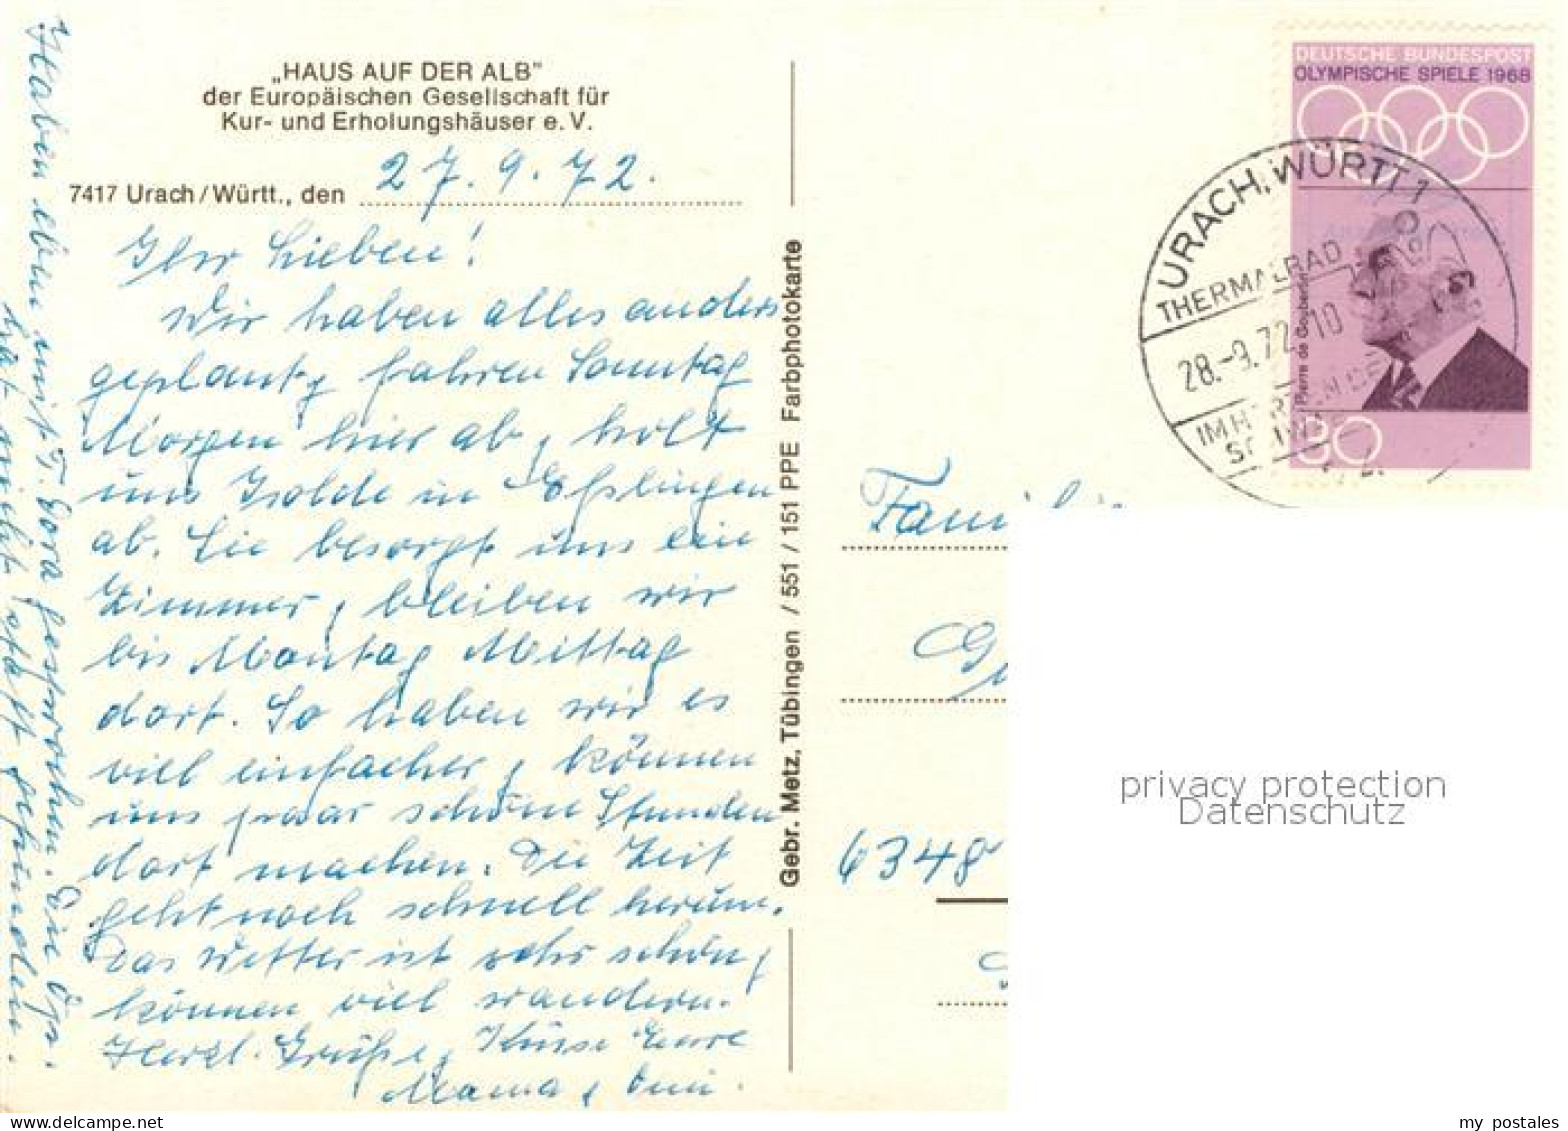 „HAUS AUF DER ALB"
der Europäischen Gesellschaft für
Kur- und Erholungshäuser e. V.
7417 Urach/Württ., den 27.9.72.
Ihr Lieben!
Wir haben alles anders
geplant, fahren Sonntag
Morgen hier ab, holt
uns Isolde in Eßlingen
ab. Sie besorgt uns ein
Zimmer, bleiben wir
bis Montag Mittag
dort. So haben wir es
viel einfacher, können
uns paar schöne Stunden
dort machen. Die Zeit
geht noch schnell herum.
Das Wetter ist sehr schön,
können viel wandern.
Herzl. Grüße, Küsse Eure
Mama,
Haben eben mit T. Dora gesprochen. Die
hat nicht statt gefunden.
Gebr. Metz, Tübingen / 551 / 151 PPE Farbphotokarte
DEUTSCHE BUNDESPOST
OLYMPISCHE SPIELE 1968
Pierre de Coubertin
30
URACH, WÜRTT 1
THERMALBAD
28.-9.72-10
IM
Familie
6348
privacy protection
Datenschutz
my_postales